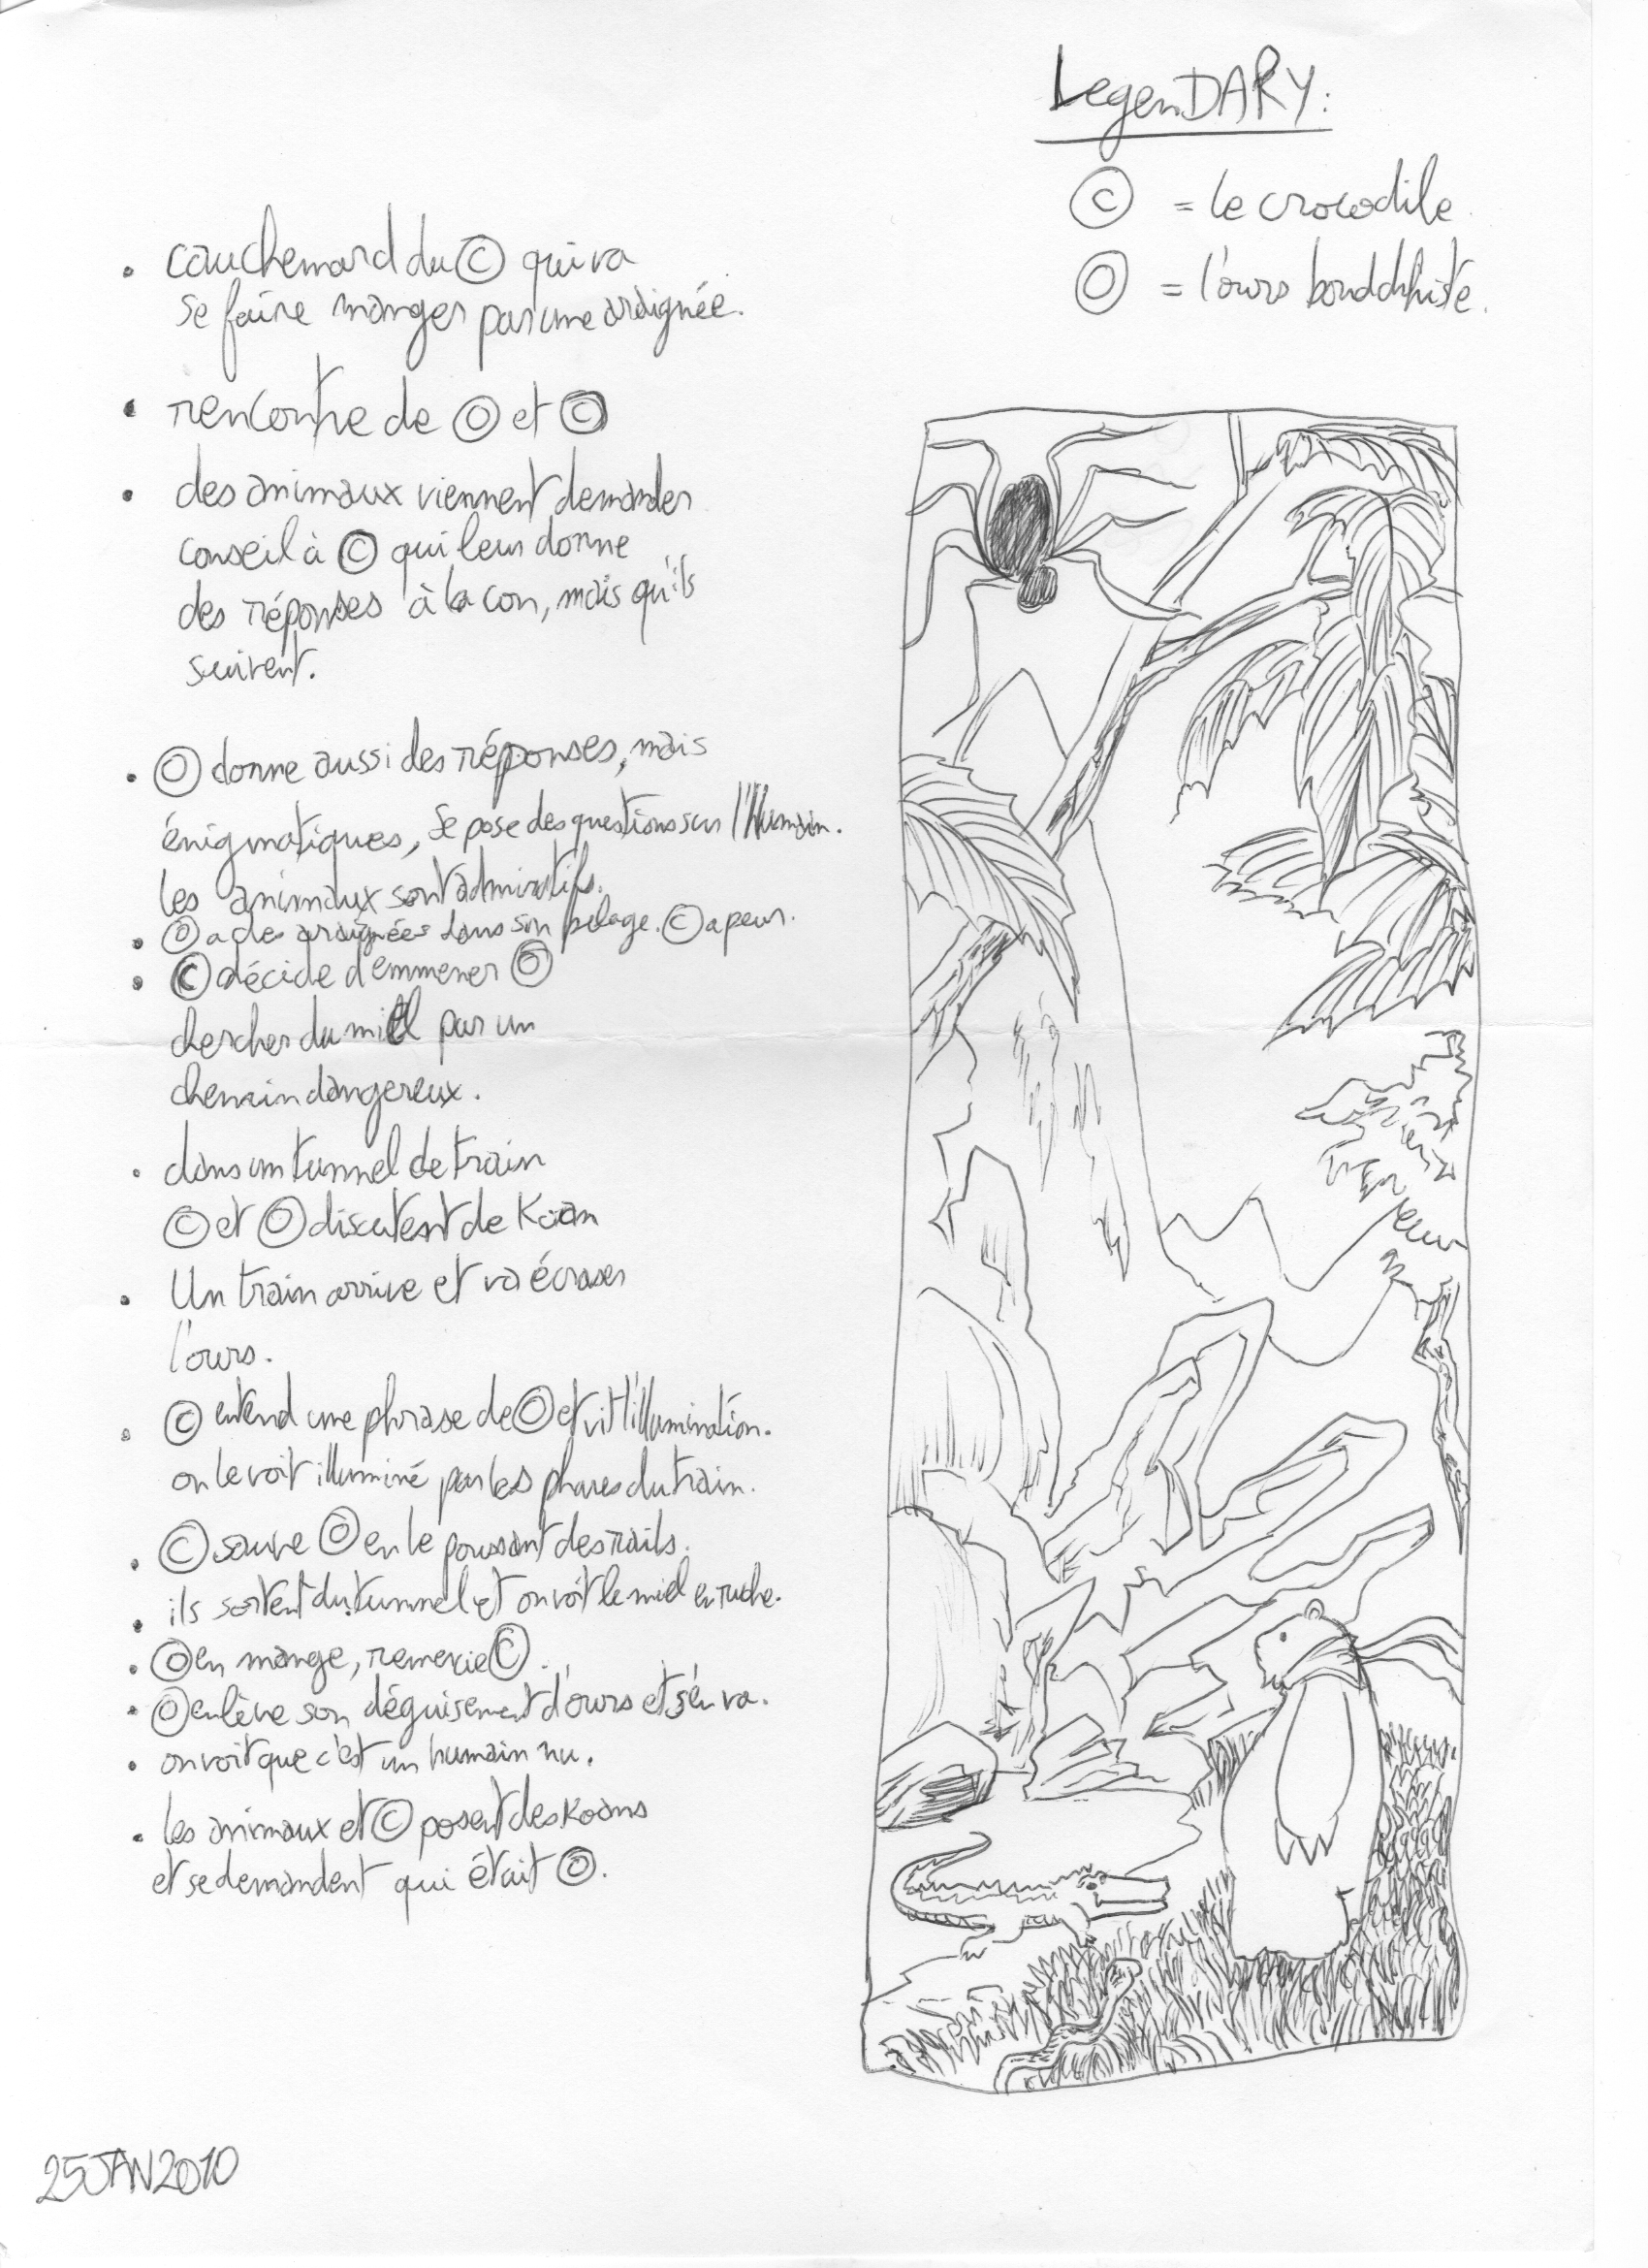 LegenDARY:
Ⓒ = le crocodile
Ⓞ = l'ours bouddhiste.
• cauchemard du Ⓒ qui va
se faire manger par une araignée.
• rencontre de Ⓞ et Ⓒ
• des animaux viennent demander
conseil à Ⓒ qui leur donne
des réponses à la con, mais qu'ils
suivent.
• Ⓞ donne aussi des réponses, mais
énigmatiques, se pose des questions sur l'Humain.
les animaux sont admiratifs.
• Ⓞ a des araignées dans son pelage. Ⓒ a peur.
• Ⓒ décide d'emmener Ⓞ
chercher du miel par un
chemin dangereux.
• dans un tunnel de train
Ⓒ et Ⓞ discutent de Koan
• Un train arrive et va écraser
l'ours.
• Ⓒ entend une phrase de Ⓞ et vit l'illumination.
on le voit illuminé par les phares du train.
• Ⓒ sauve Ⓞ en le poussant des rails.
• ils sortent du tunnel et on voit le miel en ruche.
• Ⓞ en mange, remercie Ⓒ.
• Ⓞ enlève son déguisement d'ours et s'en va.
• on voit que c'est un humain nu.
• les animaux et Ⓒ posent des Koans
et se demandent qui était Ⓞ.
25 JAN 2010